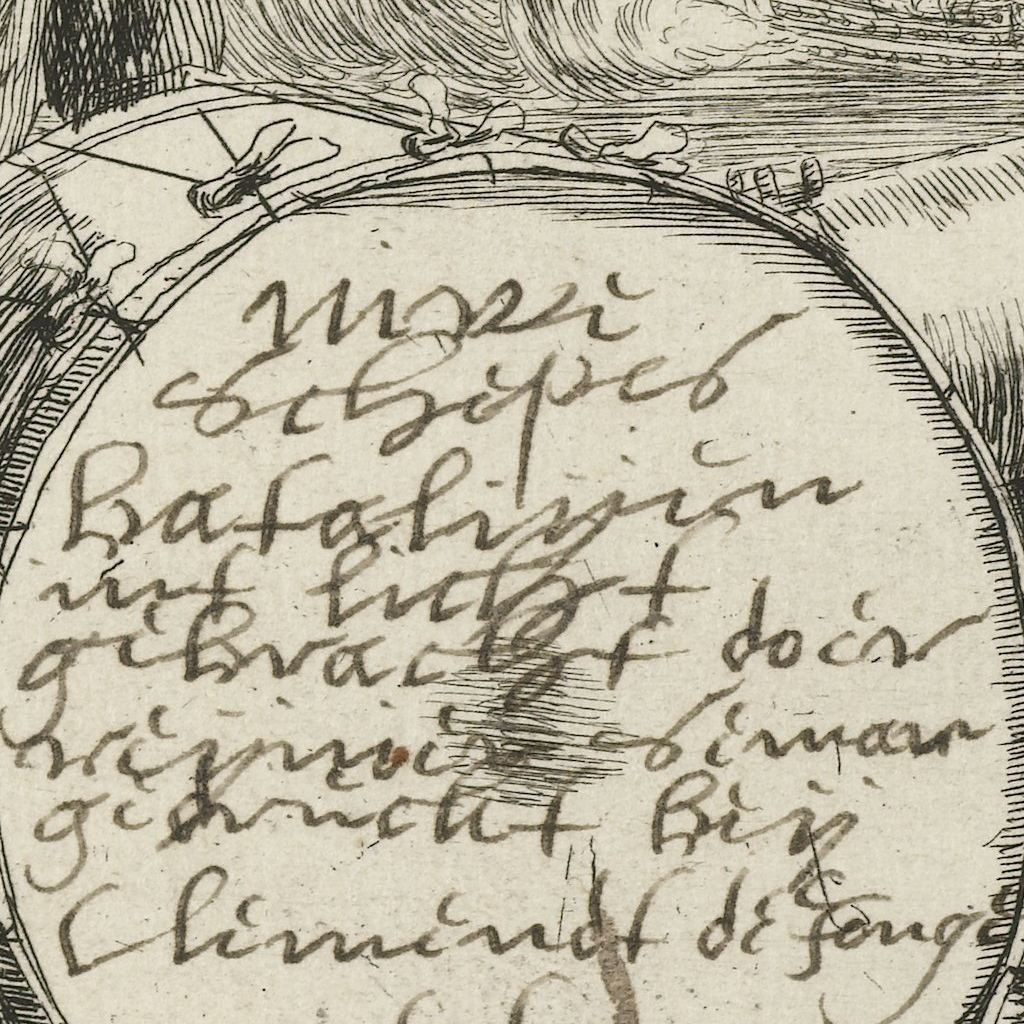 nuwe
schepes
bataliyen
int licht
gebracht doer
reynier seman
gedruckt bey
Clemendt de Jonge